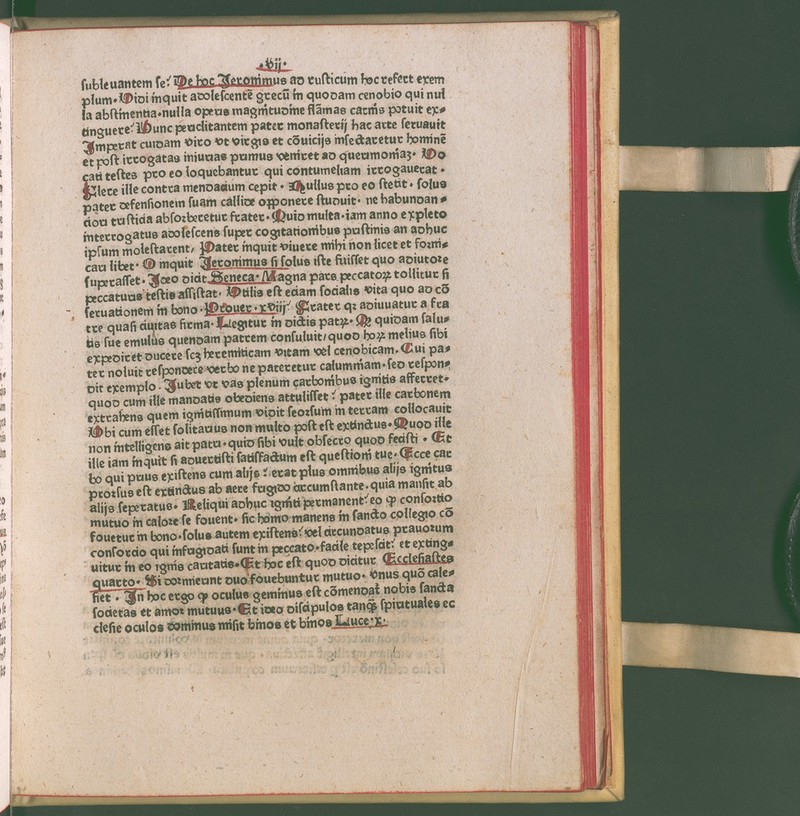 .vij.
subleuantem se: De hoc Jeronimus ad rusticum hoc refert exem
plum. Vidi inquit adolescentē grecū in quodam cenobio qui nul
la abstinentia. nulla operis magnitudīne flāmas carnis potuit ex-
tinguere: Hunc periclitantem pater monasterij hac arte seruauit
Imperat cuidam viro vt virgis et cōuicijs insectaretur hominē
et post irrogatas iniurias primus veniret ad querimoniaʒ. Vo
cati testes pro eo loquebantur qui contumeliam irrogauerat.
Flere ille contra mendacium cepit. Nullus pro eo stetit. solus
pater defensionem suam callide opponere studuit. ne habundan-
ciori tristicia absorberetur frater. Quid multa. iam anno expleto
interrogatus adolescens super cogitationibus pristinis an adhuc
ipsum molestarent, Pater inquit viuere mihi non licet et forni-
cari libet. O inquit Jeronimus si solus iste fuisset quo adiutore
superasset. Ideo dicit Seneca. Magna pars peccatoꝝ tollitur si
peccaturis testis assistat. Vtilis est eciam socialis vita quo ad cō
seruationem in bono. Prouer. xviij. Frater qͥ adiuuatur a fra
tre quasi ciuitas firma. Legitur in dictis patꝝ. Qꝫ quidam salu-
tis sue emulus quendam patrem consuluit, quod hoꝝ melius sibi
expediret ducere scʒ heremiticam vitam vel cenobicam. Cui pa-
ter noluit respondere verbo ne pateretur calumniam. sed respon-
dit exemplo. Jubet vt vas plenum carbonibus ignitis afferret.
quod cum ille mandatis obediens attulisset: pater ille carbonem
extrahens quem ignitissimum vidit seorsum in terram collocauit
Vbi cum esset solitarius non multo post est extinctus. Quod ille
non intelligens ait patri. quid sibi vult obsecro quod fecisti. Et
ille iam inquit si aduertisti satisfactum est questioni tue. Ecce car
bo qui prius existens cum alijs: erat plus omnibus alijs ignitus
prorsus est extinctus ab aere frigido circumstante. quia mansit ab
alijs seperatus. Reliqui adhuc igniti permanent: eo ꝙ consortio
mutuo in calore se fouent. sic homo manens in sancto collegio cō
fouetur in bono. solus autem existens: vel circundatus prauorum
consorcio qui infrigidati sunt in peccato. facile tepescit: et exting-
uitur in eo ignis caritatis. Et hoc est quod dicitur Ecclesiastes
quarto. Si dormierint duo fouebuntur mutuo. vnus quō cale-
fiet. In hoc ergo ꝙ oculus geminus est cōmendat nobis sancta
societas et amor mutuus. Et ideo discipulos tanqꝫ spirituales ec
clesie oculos dominus misit binos et binos Luce. x.